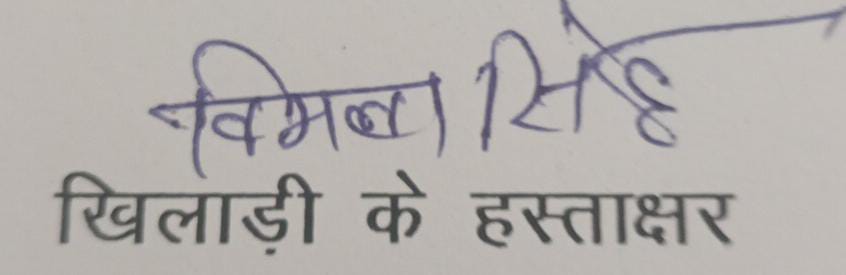 विमला सिंह
खिलाड़ी के हस्ताक्षर